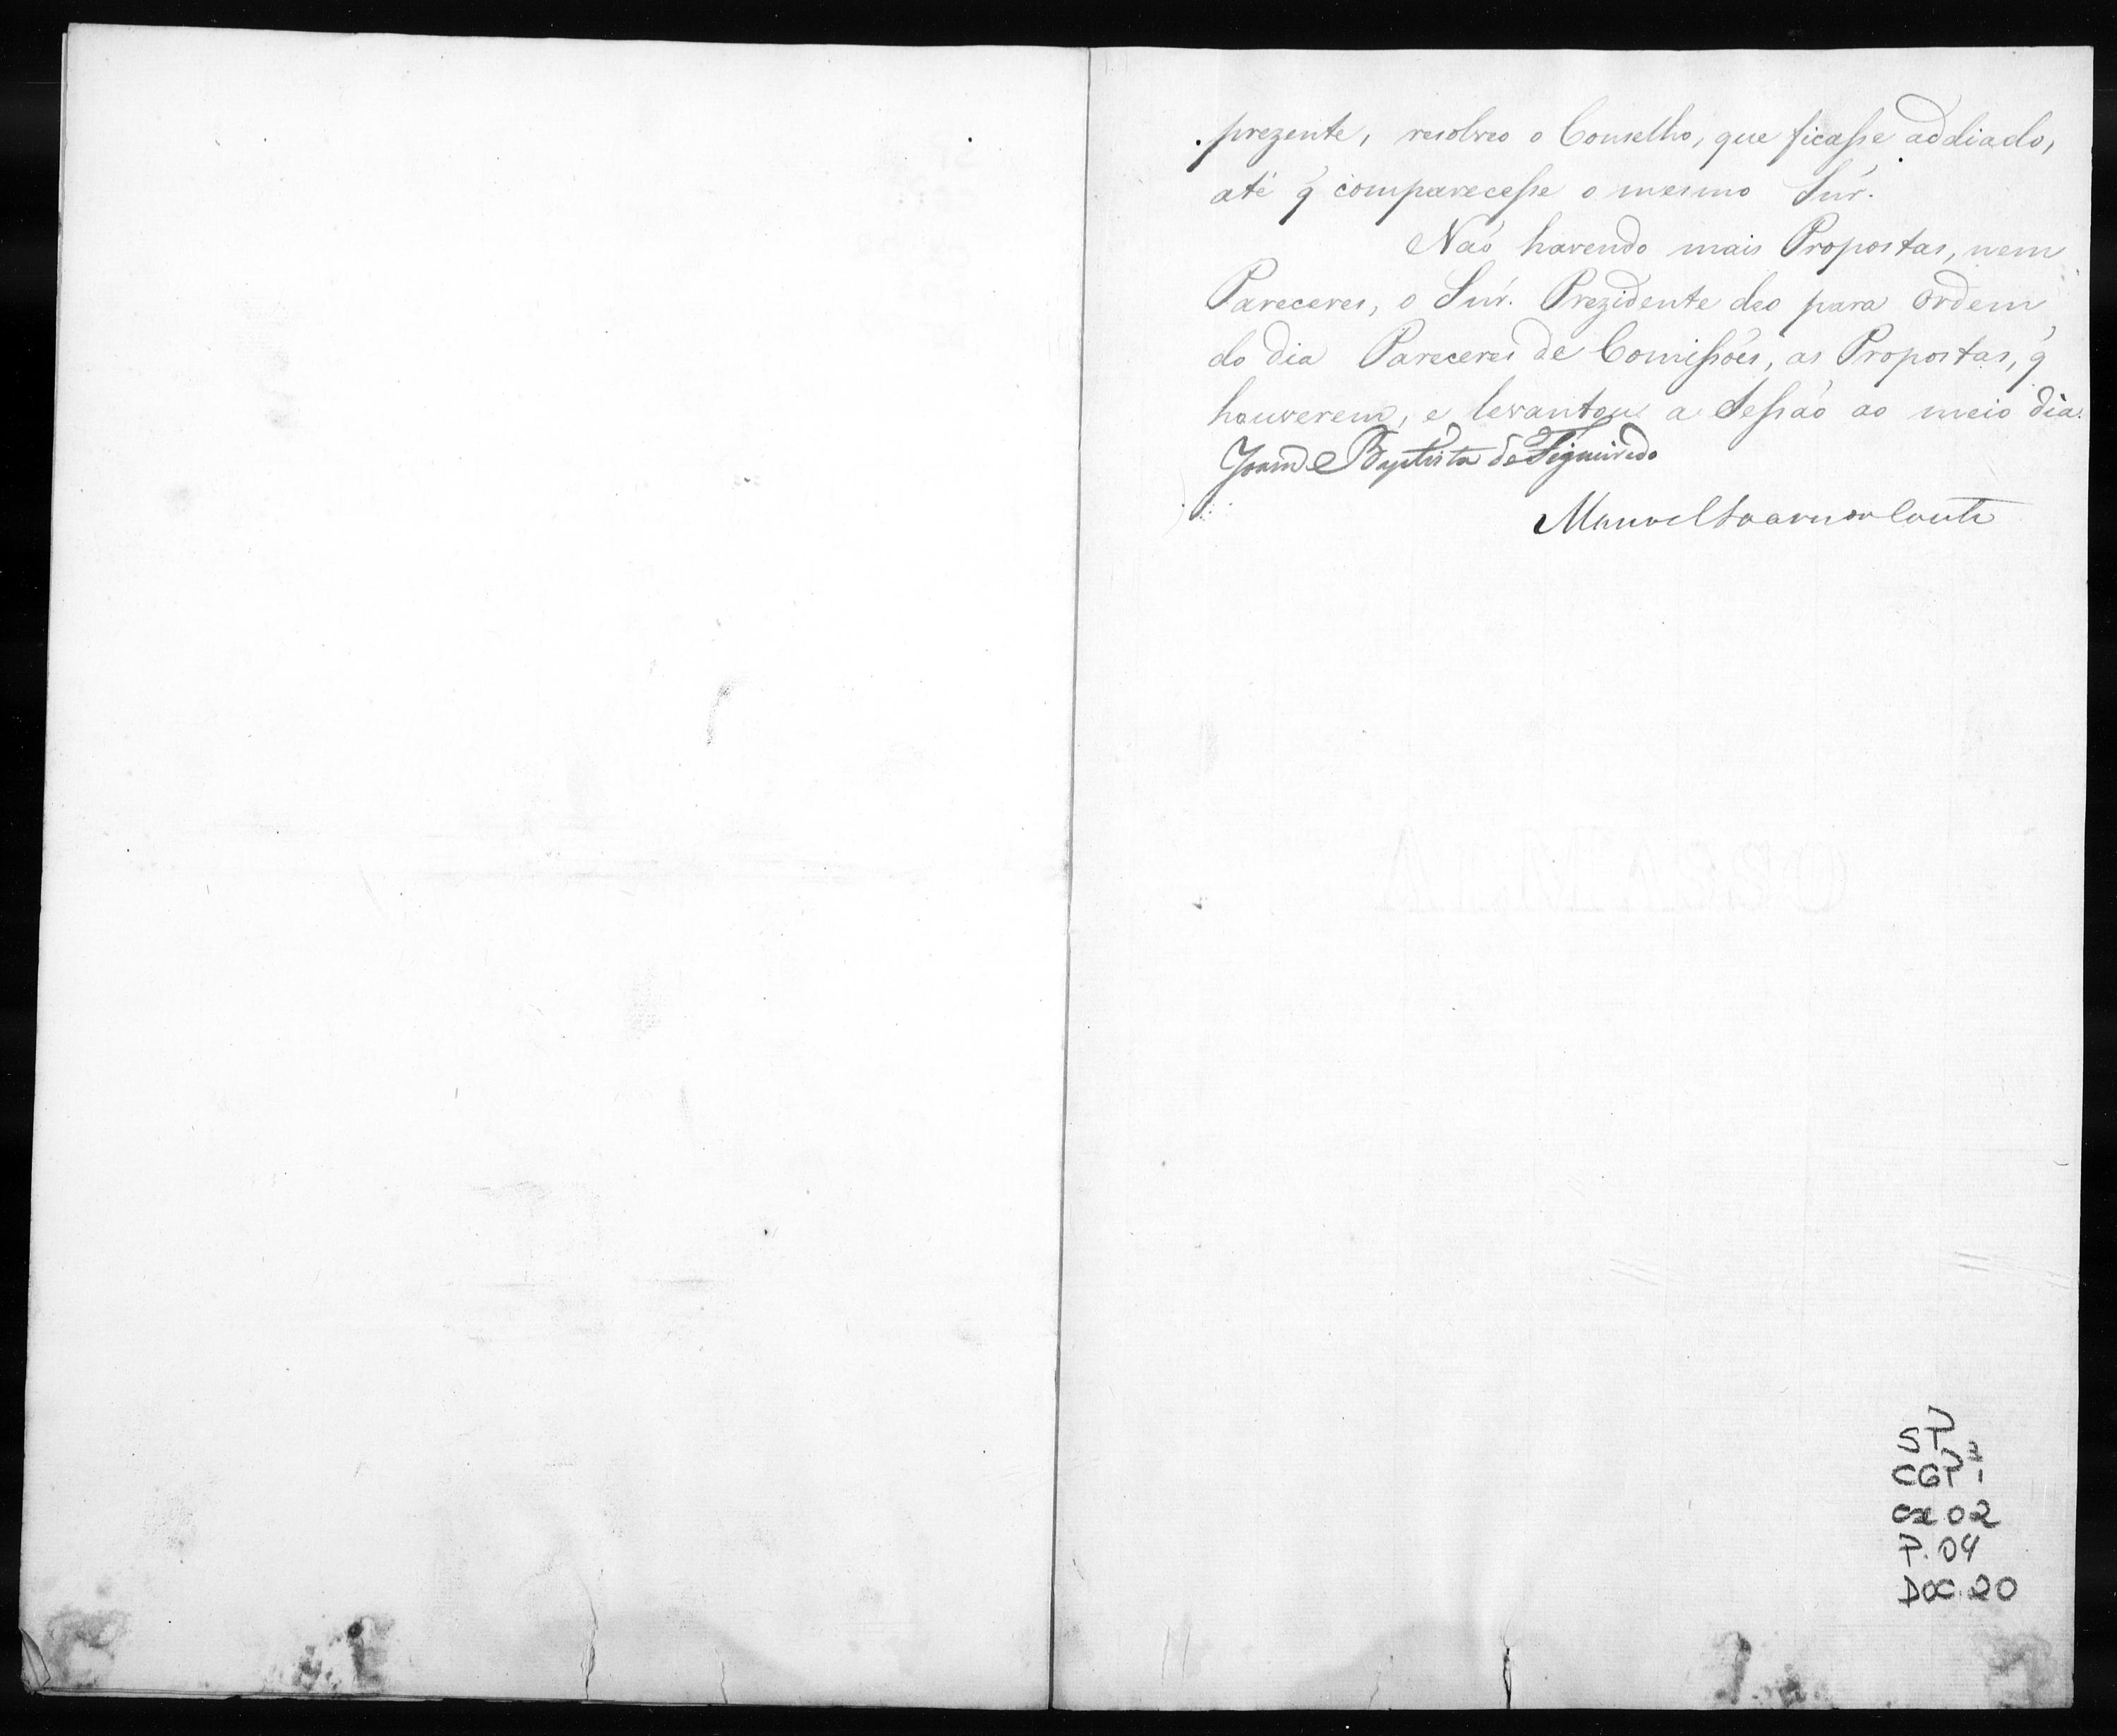 prezente, resolveo o Conselho, que ficasse addiado,
até q̃ comparecesse o mesmo Snr.
Naõ havendo mais Propostas, nem
Pareceres, o Snr. Prezidente deo para ordem
do dia Pareceres de Comissões, as Propostas, q̃
houverem, e levantou a Sessaõ ao meio dia.
Joam Baptista de Figueiredo
Manoel
SP
CGP1
cx 02
P. 04
Doc. 20